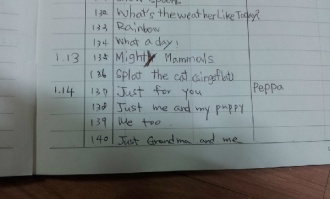 132 What's the weather Like Today?
133 Rainbow
134 What a day!
1.13 135 Mighty Mammals
136 Splat the cat sings flat
1.14 137 Just for you Peppa
138 Just me and my puppy
139 Me too
140 Just Grandma and me